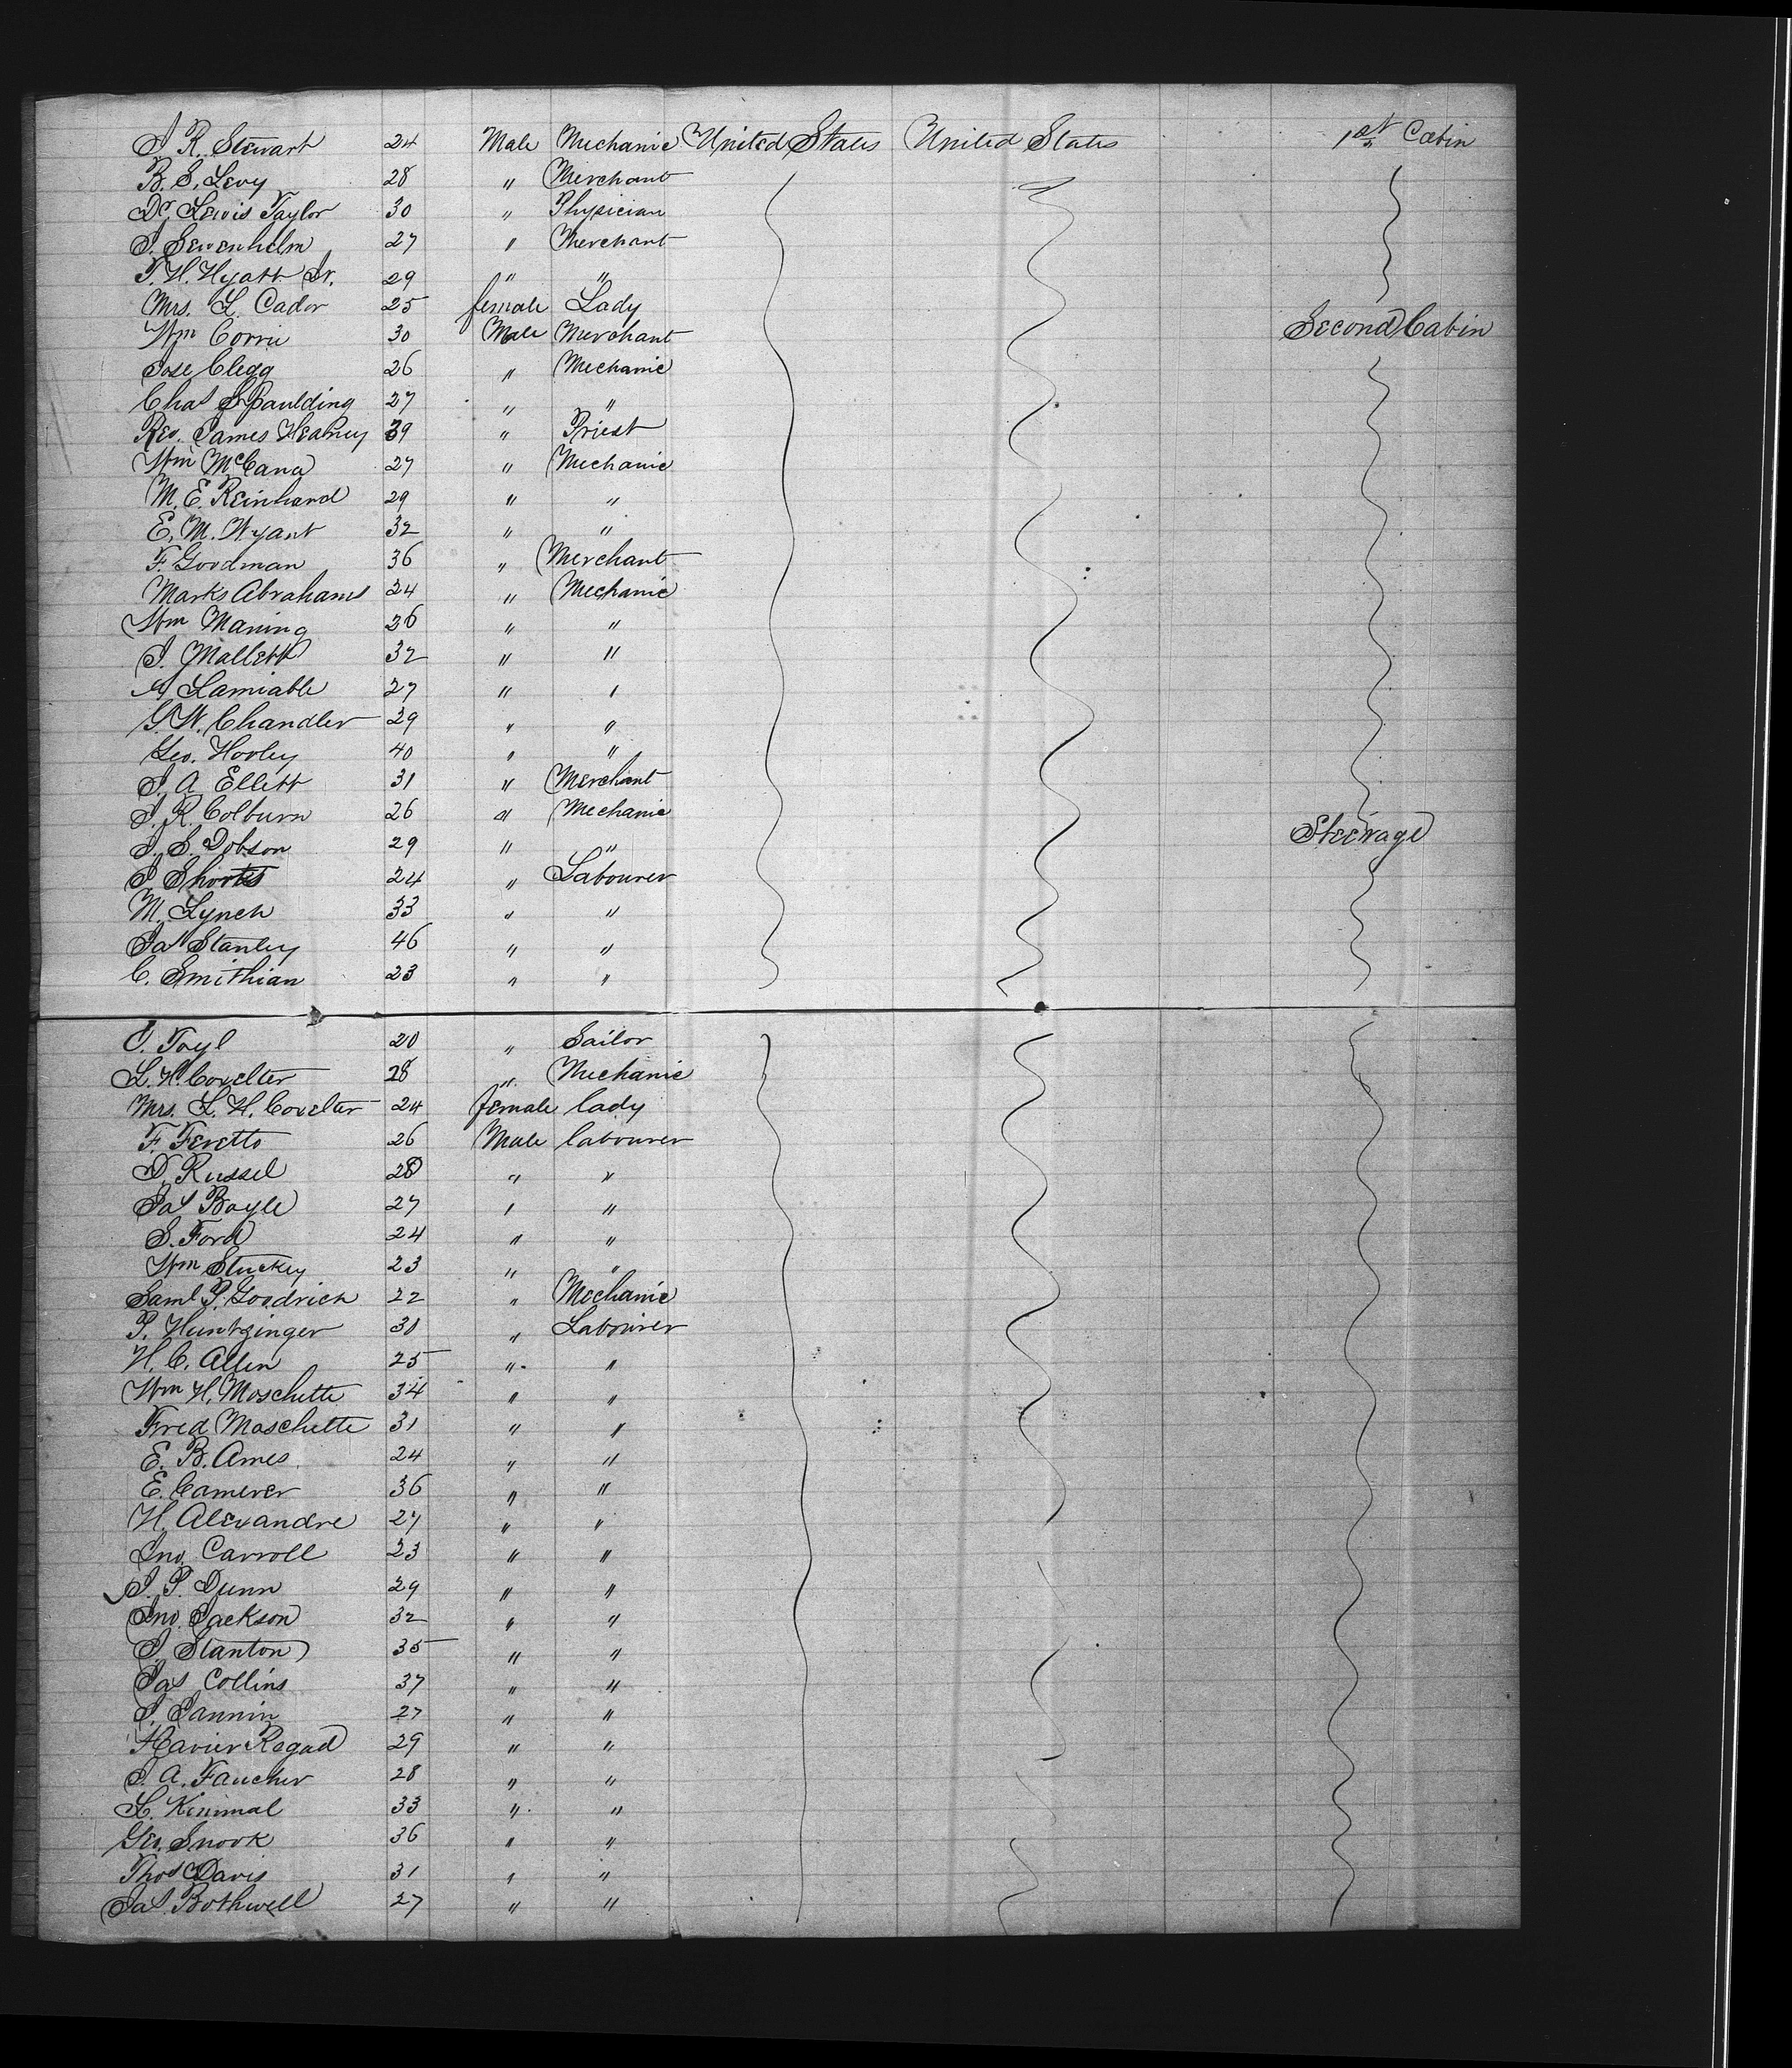 J. R. Stewart 24 Male Mechanic United States United States 1st Cabin
B. S. Levy 28 " Merchant
Dr. Lewis Taylor 30 " Physician
J. Sewenhelm 27 " Merchant
T. H. Hyatt Jr. 29 " "
Mrs. L. Cador 25 female Lady
Wm Corrie 30 Male Merchant Second Cabin
Jose Clegg 26 " Mechanic
Chas Spaulding 27 " "
Rev. James Healney 39 " Priest
Wm McCana 27 " Mechanic
M. E. Reinhard 29 " "
E. M. Wyant 32 " "
F. Goodman 36 " Merchant
Marks Abrahams 24 " Mechanic
Wm Maning 26 " "
J. Mallett 32 " "
Lamiable 27 " "
G. W. Chandler 29 " "
Geo. Hooley 40 " "
J. A. Ellett 31 " Merchant
J. R. Colburn 26 " Mechanic
J. S. Dobson 29 " " Steerage
J Shorts 24 " Labourer
M. Lynch 33 " "
Jas Stanley 46 " "
C. Smithian 23 " "
Toyl 20 " Sailor
L. H. Covelter 28 " Mechanic
Mrs. L. H. Covelter 24 female lady
F. Feretto 26 Male labourer
D. Russel 28 " "
Jas Boyle 27 " "
S. Ford 24 " "
Wm Stuckey 23 " "
Saml P. Goodrich 22 " Mechanic
P. Huntzinger 30 " Labourer
H. C. Allen 25 " "
Wm H. Moschette 34 " "
Fred Moschette 31 " "
E. B. Ames 24 " "
E. Camerer 36 " "
H. Alexandre 27 " "
Jno. Carroll 23 " "
J. P. Dunn 29 " "
Jno. Jackson 32 " "
J. Stanton 35 " "
Jas Collins 37 " "
J. Jannin 27 " "
Xavier Regad 29 " "
J. A. Faucher 28 " "
L. Kinimal 33 " "
Geo. Snook 36 " "
Thos Davis 31 " "
Jas Bothwell 27 " "